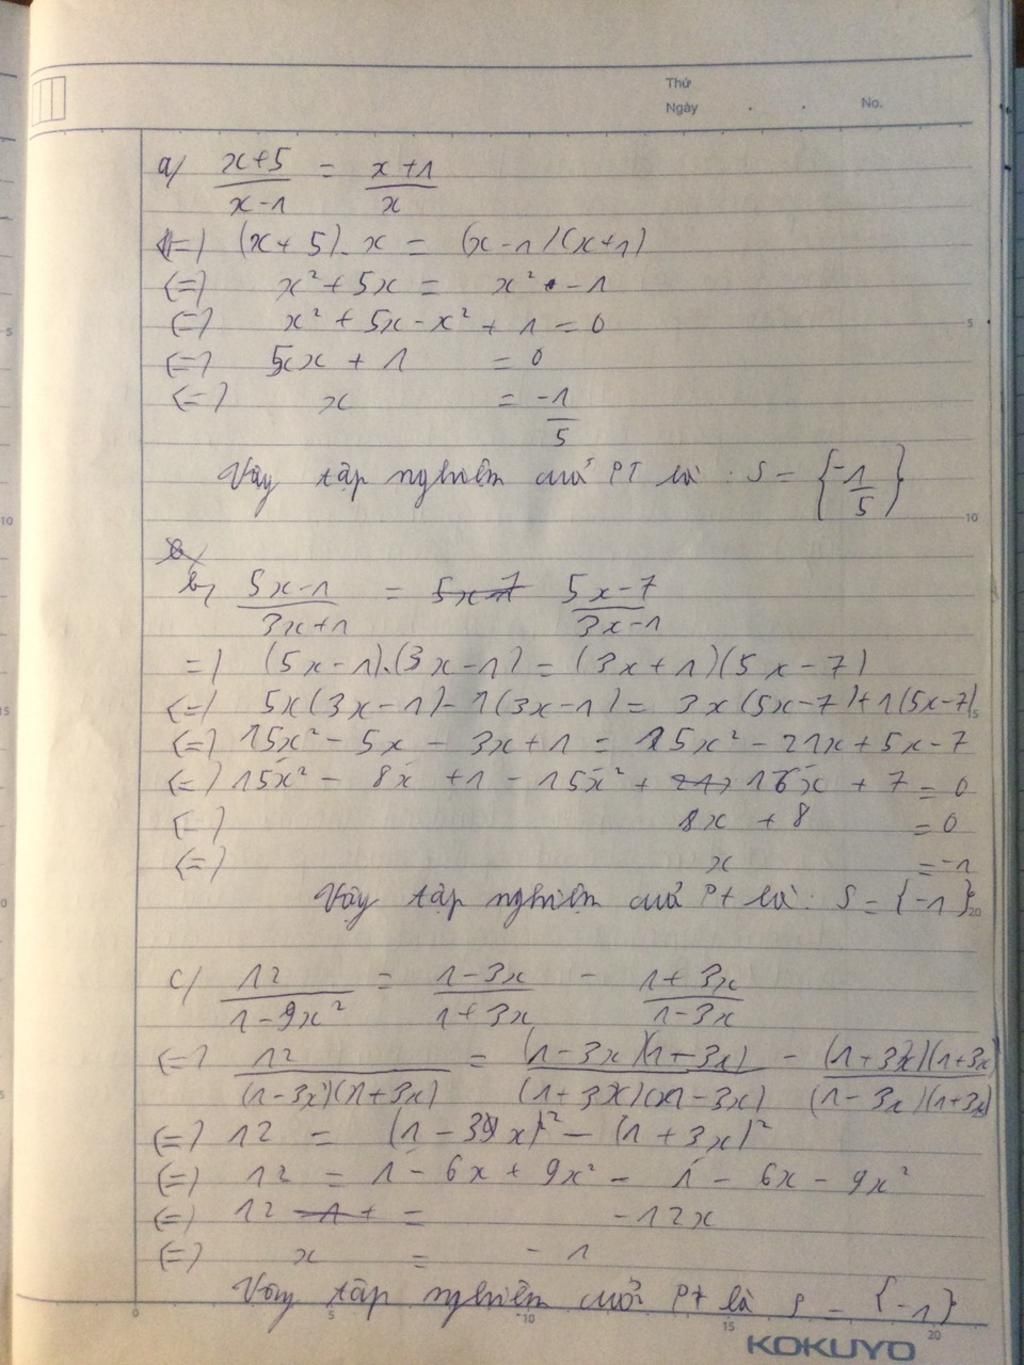 Thứ
Ngày . . No.
a) (x+5)/(x-1) = (x+1)/x
(=) (x+5).x = (x-1)(x+1)
(=) x² + 5x = x² - 1
(=) x² + 5x - x² + 1 = 0
(=) 5x + 1 = 0
(=) x = -1/5
Vậy tập nghiệm của PT là : S = {-1/5}
b) (5x-1)/(3x+1) = (5x-7)/(3x-1)
=) (5x-1).(3x-1) = (3x+1)(5x-7)
(=) 5x(3x-1) - 1(3x-1) = 3x(5x-7) + 1(5x-7)
(=) 15x² - 5x - 3x + 1 = 15x² - 21x + 5x - 7
(=) 15x² - 8x + 1 - 15x² + 16x + 7 = 0
(=) 8x + 8 = 0
(=) x = -1
Vậy tập nghiệm của Pt là : S = {-1}
c) 12/(1-9x²) = (1-3x)/(1+3x) - (1+3x)/(1-3x)
(=) 12/((1-3x)(1+3x)) = (1-3x)(1-3x)/((1+3x)(1-3x)) - (1+3x)(1+3x)/((1-3x)(1+3x))
(=) 12 = (1-3x)² - (1+3x)²
(=) 12 = 1 - 6x + 9x² - 1 - 6x - 9x²
(=) 12 = -12x
(=) x = -1
Vậy tập nghiệm của Pt là S = {-1}
0 5 10 15 20
KOKUYO